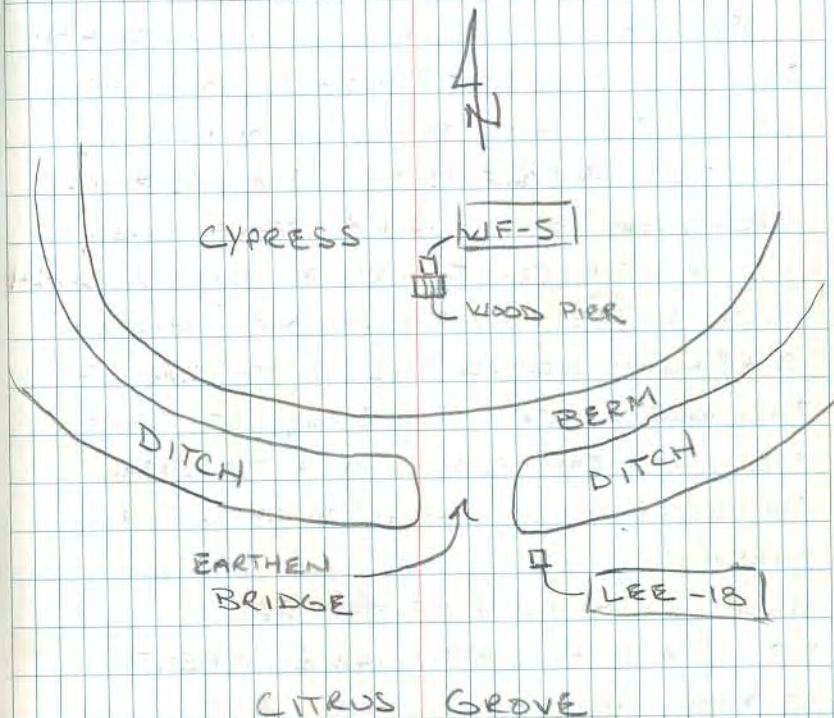 N
CYPRESS
WF-5
WOOD PIER
BERM
DITCH
DITCH
EARTHEN
BRIDGE
LEE-18
CITRUS GROVE